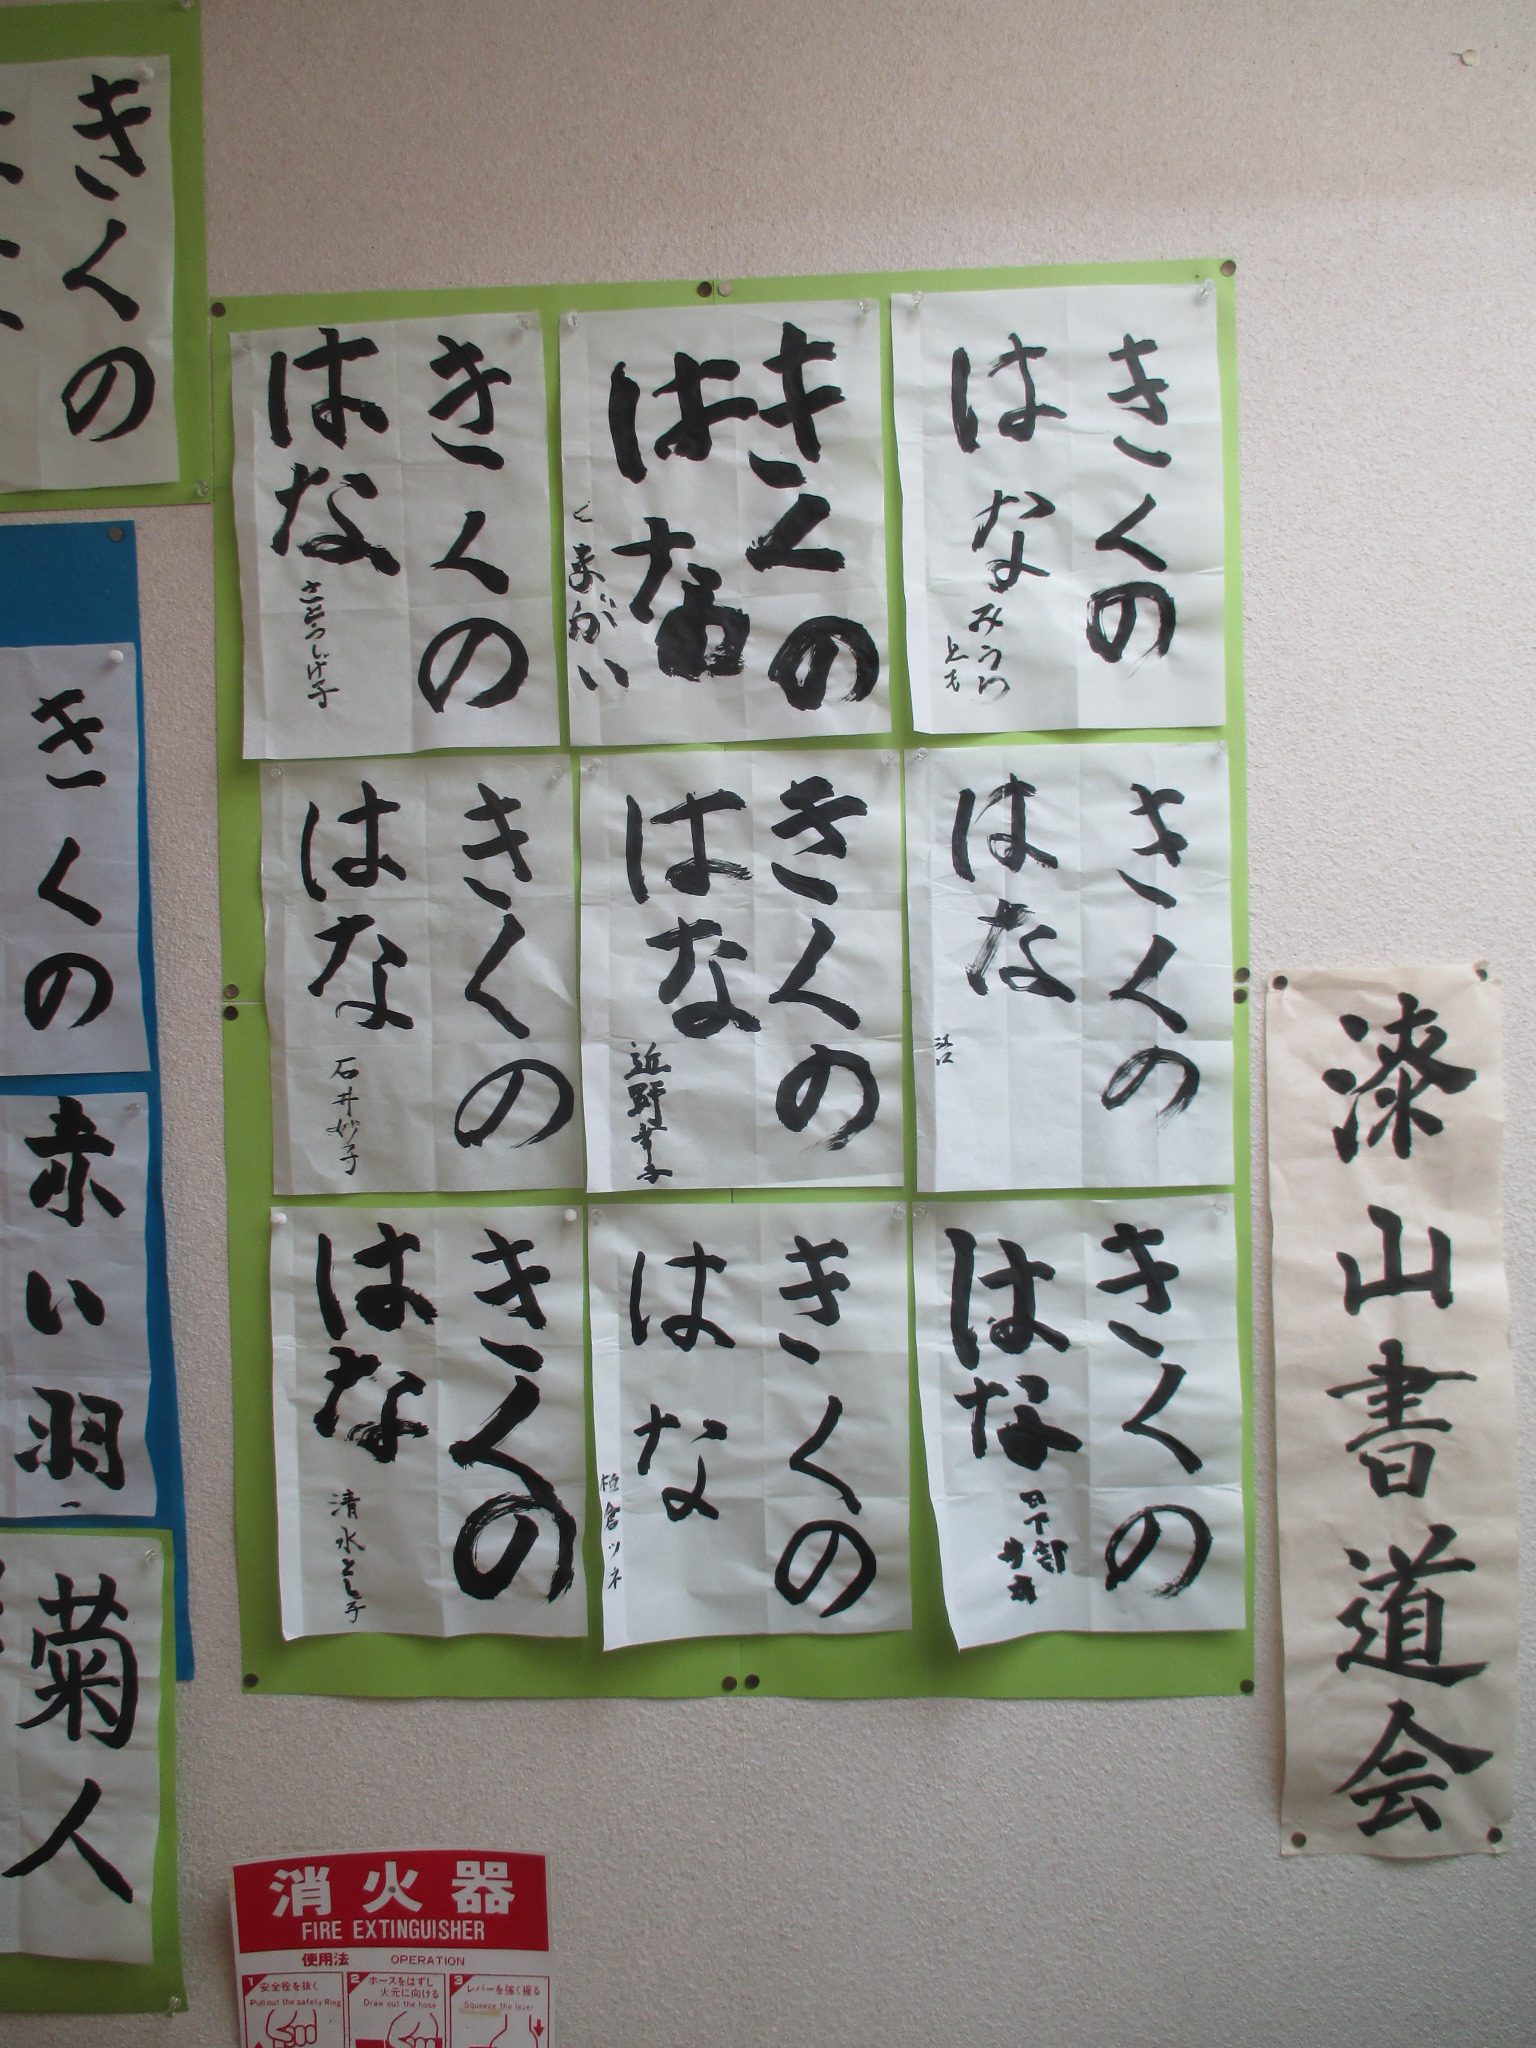 きくの
はな
みうら
とも
きくの
はな
くまがい
きくの
はな
さとうしげ子
きくの
はな
江口
きくの
はな
近野幸子
きくの
はな
石井妙子
きくの
はな
日下部
きくの
はな
柏倉ツネ
きくの
はな
清水とし子
漆山書道会
きくの
きくの
赤い羽
菊人
消火器
FIRE EXTINGUISHER
使用法 OPERATION
1 安全栓を抜く
Pull out the safety Ring
2 ホースをはずし
火元に向ける
Draw out the hose
3 レバーを強く握る
Squeeze the lever